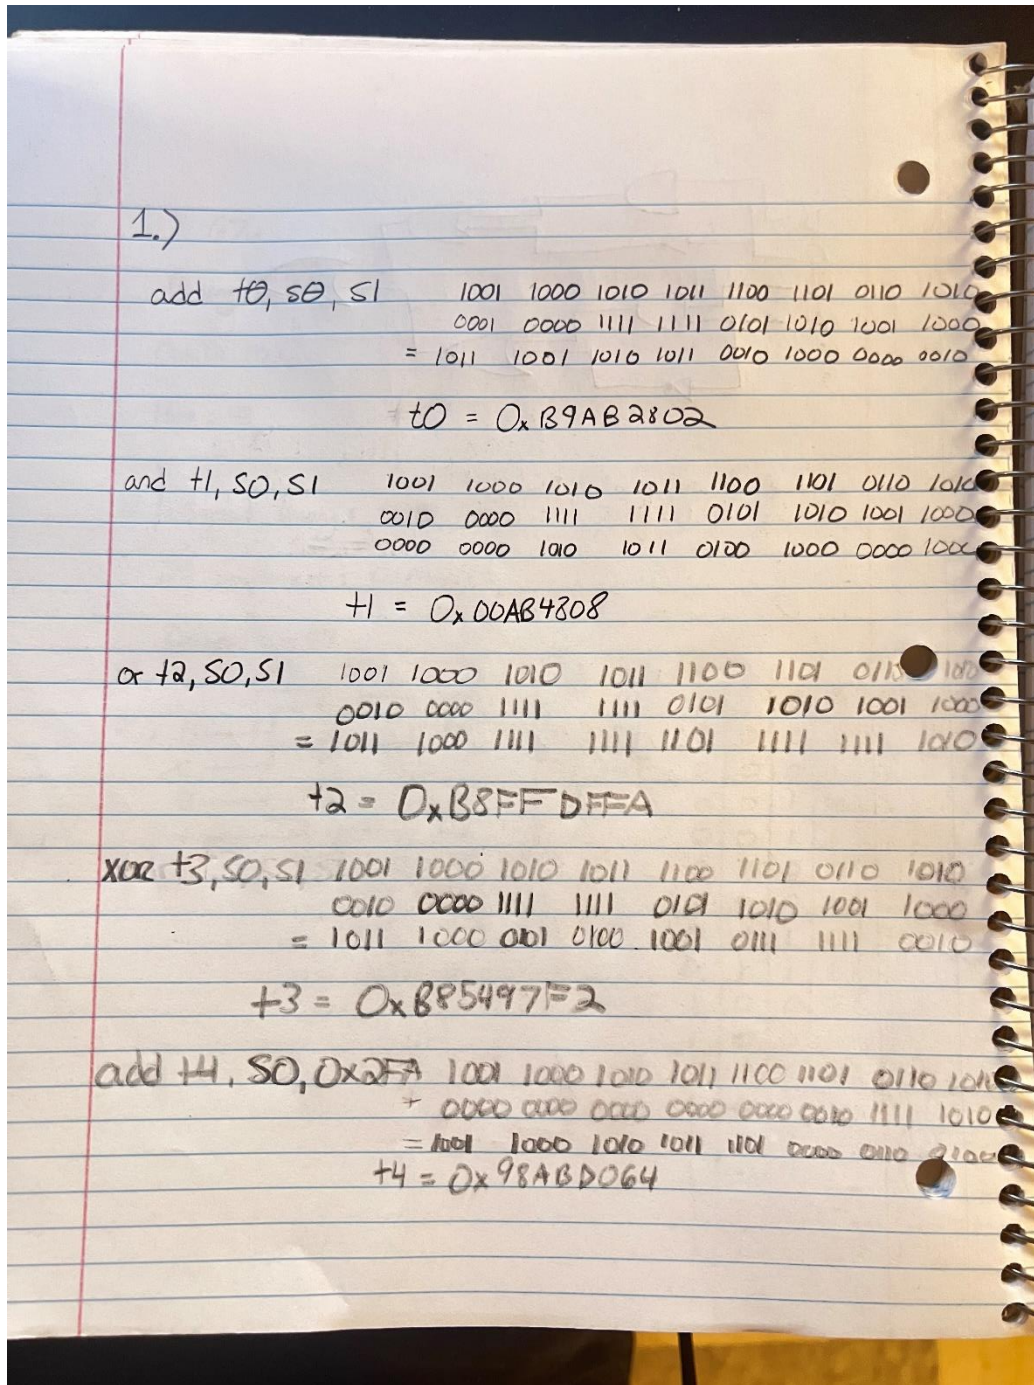 1.)
add t0, s0, s1 1001 1000 1010 1011 1100 1101 0110 1010
0001 0000 1111 1111 0101 1010 1001 1000
= 1011 1001 1010 1011 0010 1000 0000 0010
t0 = 0x B9AB2802
and t1, S0, S1 1001 1000 1010 1011 1100 1101 0110 1010
0010 0000 1111 1111 0101 1010 1001 1000
0000 0000 1010 1011 0100 1000 0000 1000
t1 = 0x 00AB4808
or t2, S0, S1 1001 1000 1010 1011 1100 1101 1010
0010 0000 1111 1111 0101 1010 1001 1000
= 1011 1000 1111 1111 1101 1111 1111 1010
t2 = 0xB8FFDFFA
xor t3, S0, S1 1001 1000 1010 1011 1100 1101 0110 1010
0010 0000 1111 1111 0101 1010 1001 1000
= 1011 1000 0101 0100 1001 0111 1111 0010
t3 = 0xB85497F2
add t4, S0, 0x2FA 1001 1000 1010 1011 1100 1101 0110 1010
+ 0000 0000 0000 0000 0000 0010 1111 1010
= 1001 1000 1010 1011 1101 0000 0110 0100
t4 = 0x98ABD064